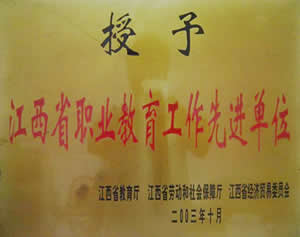 授予
江西省职业教育工作先进单位
江西省教育厅 江西省劳动和社会保障厅 江西省经济贸易委员会
二00三年十月